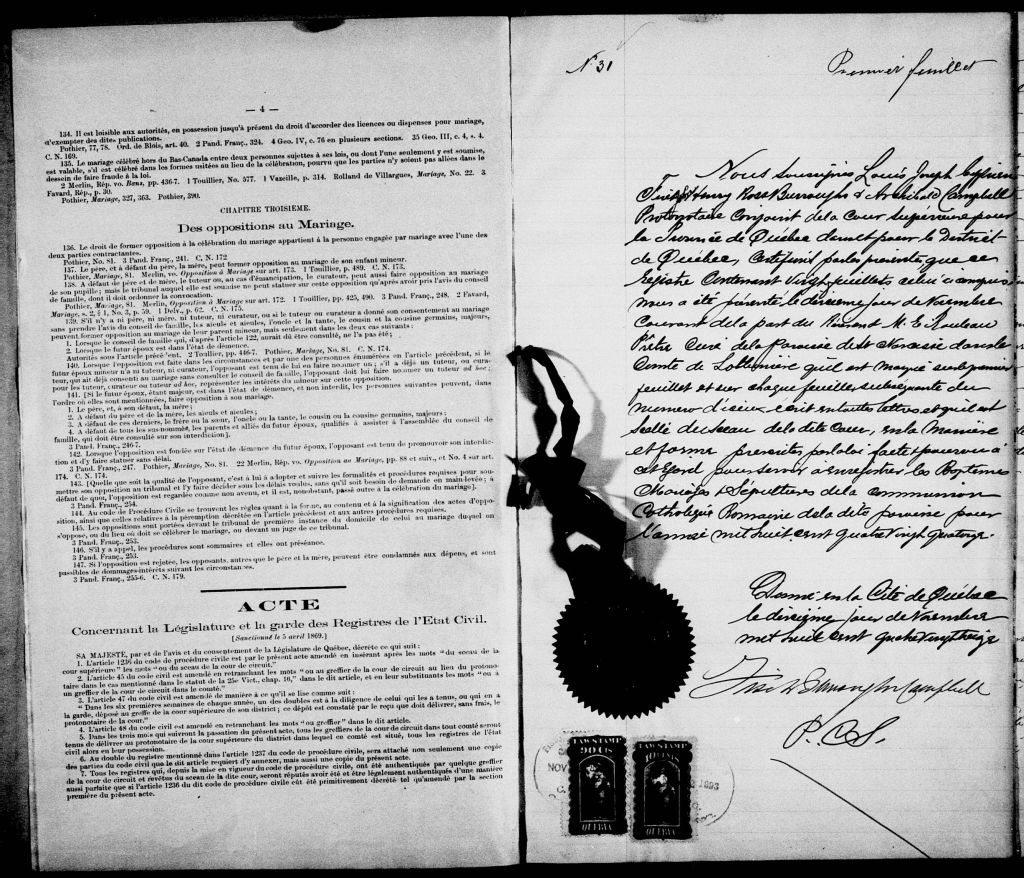 — 4 —
134. Il est loisible aux autorités, en possession jusqu'à présent du droit d'accorder des licences ou dispenses pour mariage,
d'exempter des dites publications.
Pothier, 77, 78. Ord. de Blois, art. 40. 2 Pand. Franç., 324. 4 Geo. IV, c. 76 en plusieurs sections. 35 Geo. III, c. 4, s. 4.
C. N. 169.
135. Le mariage célébré hors du Bas-Canada entre deux personnes sujettes à ses lois, ou dont l'une seulement y est soumise,
est valable, s'il est célébré dans les formes usitées au lieu de la célébration, pourvu que les parties n'y soient pas allées dans le
dessein de faire fraude à la loi.
2 Merlin, Rép. vo. Bans, pp. 436-7. 1 Touillier, No. 577. 1 Vazeille, p. 314. Rolland de Villargues, Mariage, No. 22. 3
Favard, Rép., p. 30.
Pothier, Mariage, 327, 363. Pothier, 390.
CHAPITRE TROISIEME.
Des oppositions au Mariage.
136. Le droit de former opposition à la célébration du mariage appartient à la personne engagée par mariage avec l'une des
deux parties contractantes.
Pothier, No. 81. 3 Pand. Franç., 241. C. N. 172
137. Le père, et à défaut du père, la mère, peut former opposition au mariage de son enfant mineur.
Pothier, Mariage, 81. Merlin, vo. Opposition à Mariage sur art. 173. 1 Touillier, p. 489. C. N. 173.
138. A défaut de père et de mère, le tuteur ou, au cas d'émancipation, le curateur, peut aussi faire opposition au mariage
de son pupille; mais le tribunal auquel elle est soumise ne peut statuer sur cette opposition qu'après avoir pris l'avis du conseil
de famille, dont il doit ordonner la convocation.
Pothier, Mariage, 81. Merlin, Opposition à Mariage sur art. 172. 1 Touillier, pp. 425, 490. 3 Pand. Franç., 248. 2 Favard,
Mariage, s. 2, § 1, No. 3, p. 59. 1 Delv., p. 62. C. N. 175.
139. S'il n'y a ni père, ni mère, ni tuteur, ni curateur, ou si le tuteur ou curateur a donné son consentement au mariage
sans prendre l'avis du conseil de famille, les aïeuls et aïeules, l'oncle et la tante, le cousin et la cousine germains, majeurs,
peuvent former opposition au mariage de leur parent mineur, mais seulement dans les deux cas suivants:
1. Lorsque le conseil de famille qui, d'après l'article 122, aurait dû être consulté, ne l'a pas été;
2. Lorsque le futur époux est dans l'état de démence.
Autorités sous l'article précé 'ent. 2 Touillier, pp. 446-7. Pothier, Mariage, No. 81. C. N. 174.
140. Lorsque l'opposition est faite dans les circonstances et par une des personnes énumérées en l'article précédent, si le
futur époux mineur n'a ni tuteur, ni curateur, l'opposant est tenu de lui en faire nommer un; s'il a déjà un tuteur, ou cura-
teur, qui ait déjà consenti au mariage sans consulter le conseil de famille, l'opposant doit lui faire nommer un tuteur ad hoc;
pour les tuteur, curateur ou tuteur ad hoc, représenter les intérêts du mineur sur cette opposition.
141. [Si le futur époux, étant majeur, est dans l'état de démence, et non interdit, les personnes suivantes peuvent, dans
l'ordre où elles sont mentionnées, faire opposition à son mariage.
1. Le père, et, à son défaut, la mère;
2. A défaut du père et de la mère, les aïeuls et aïeules;
3. A défaut de ces derniers, le frère ou la sœur, l'oncle ou la tante, le cousin ou la cousine germains, majeurs;
4. A défaut de tous les sus-nommés, les parents et alliés du futur époux, qualifiés à assister à l'assemblée du conseil de
famille, qui doit être consulté sur son interdiction].
3 Pand. Franç., 246-7.
142. Lorsque l'opposition est fondée sur l'état de démence du futur époux, l'opposant est tenu de promouvoir son interdic-
tion et d'y faire statuer sans délai.
3 Pand. Franç., 247. Pothier, Mariage, No. 81. 22 Merlin, Rép. vo. Opposition au Mariage, pp. 88 et suiv., et No. 4 sur art.
174. C. N. 174.
143. [Quelle que soit la qualité de l'opposant, c'est à lui à adopter et suivre les formalités et procédures requises pour sou-
mettre son opposition au tribunal et l'y faire décider sous les délais voulus, sans qu'il soit besoin de demande en main-levée; à
défaut de quoi, l'opposition est regardée comme non avenu, et il est, nonobstant, passé outre à la célébration du mariage].
3 Pand. Franç., 254.
144. Au code de Procédure Civile se trouvent les règles quant à la forme, au contenu et à la signification des actes d'oppo-
sition, ainsi que celles relatives à la péremption décrétée en l'article précédent et aux autres procédures requises.
145. Les oppositions sont portées devant le tribunal de première instance du domicile de celui au mariage duquel on
s'oppose, ou du lieu où doit se célébrer le mariage, ou devant un juge de ce tribunal.
3 Pand. Franç., 253.
146. S'il y a appel, les procédures sont sommaires et elles ont préséance.
3 Pand. Franç., 253.
147. Si l'opposition est rejetée, les opposants, autres que le père et la mère, peuvent être condamnés aux dépens, et sont
passibles de dommages-intérêts suivant les circonstances.
3 Pand. Franç., 255-6. C. N. 179.
ACTE
Concernant la Législature et la garde des Registres de l'Etat Civil.
[Sanctionné le 5 avril 1869.]
SA MAJESTÉ, par et de l'avis et du consentement de la Législature de Québec, décrète ce qui suit:
1. L'article 1236 du code de procédure civile est par le présent acte amendé en insérant après les mots "du sceau de la
cour supérieure" les mots "ou du sceau de la cour de circuit."
2. L'article 45 du code civil est amendé en retranchant les mots "ou au greffier de la cour de circuit au lieu du protono-
taire dans le cas mentionné dans le statut de la 25e Vict., chap. 16," dans le dit article, et en leur substituants les mots "ou à
un greffier de la cour de circuit dans le comté."
3. L'article 47 du code civil est amendé de manière à ce qu'il se lise comme suit:
"Dans les six premières semaines de chaque année, un des doubles est à la diligence de celui qui les a tenus, ou qui en a
la garde, déposé au greffe de la cour supérieure de son district; ce dépôt est constaté par le reçu que doit délivrer, sans frais, le
protonotaire de la cour."
4. L'article 48 du code civil est amendé en retranchant les mots "ou greffier" dans le dit article.
5. Dans les trois mois qui suivront la passation du présent acte, tous les greffiers de la cour de circuit dans tout comté seront
tenus de délivrer au protonotaire de la cour supérieure du district dans lequel ce comté est situé, tous les registres de l'état
civil alors en leur possession.
6. Au double du registre mentionné dans l'article 1237 du code de procédure civile, sera attaché non seulement une copie
des parties du code civil que le dit article requiert d'y annexer, mais aussi une copie du présent acte.
7. Tous les registres qui, depuis la mise en vigueur du code de procédure civile, ont été authentiqués par quelque greffier
de la cour de circuit et revêtus du sceau de la dite cour, seront réputés avoir été et être légalement authentiqués d'une manière
aussi parfaite que si l'article 1236 du dit code de procédure civile eût été primitivement décrété tel qu'amendé par la section
première du présent acte.
No 31
Premier feuillet
Nous soussignés Louis Joseph Cyprien
Fiset, Henry Ross Burroughs & Archibald Campbell
Protonotaire Conjoint de la Cour Supérieure pour
la Province de Québec dans et pour le District
de Québec, Certifions par les présentes que ce
registre Contenant Vingt feuillets celui ci compris
nous a été présenté le dixième jour de Novembre
Courant de la part du Révérend M. E. Rouleau
Prêtre Curé de la Paroisse de St Narcisse dans le
Comté de Lotbinière qu'il est marqué sur le premier
feuillet et sur chaque feuillet subséquent du
numero d'iceux écrit en toutes lettres et qu'il est
scellé du sceau de la dite Cour, en la manière
et forme prescrites par la loi faite et pourvue à
cet égard pour servir à enregistrer les Baptêmes
Mariages & Sépultures de la communion
Catholique Romaine de la dite paroisse pour
l'année mil huit cent quatre vingt quatorze.
Donné en la Cité de Québec
le dixième jour de Novembre
mil huit cent quatre vingt treize
Fiset Burroughs Campbell
P. C. S.
NOV
1893
LAW STAMP
90 CTS
QUEBEC
LAW STAMP
10 CENTS
QUEBEC